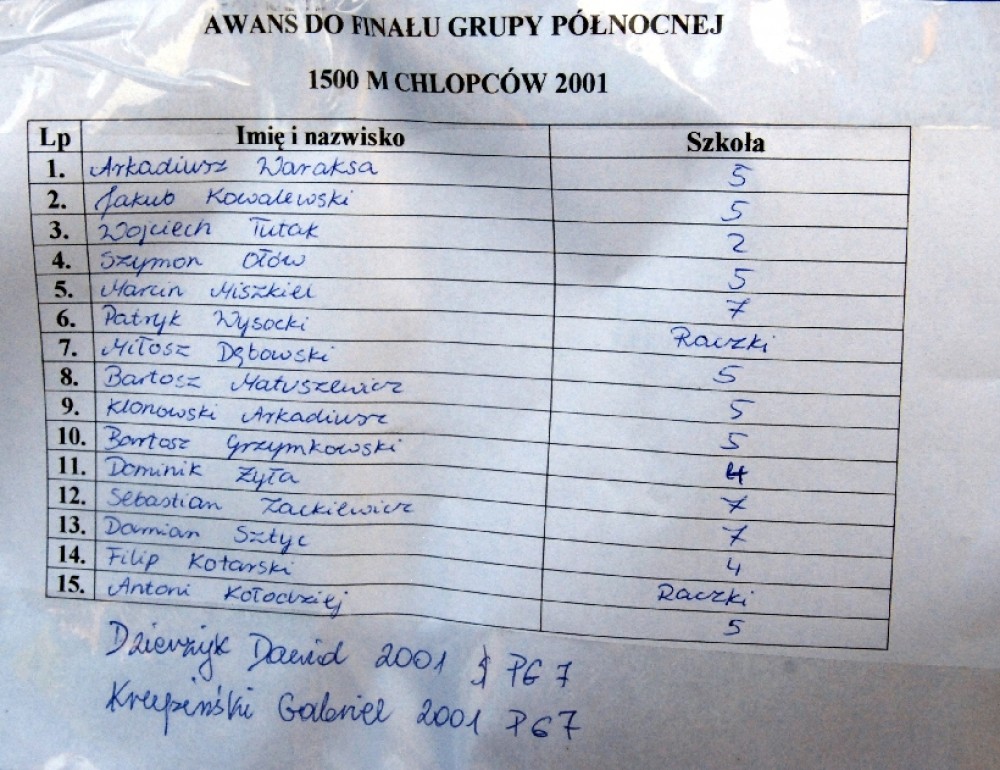 AWANS DO FINAŁU GRUPY PÓŁNOCNEJ
1500 M CHLOPCÓW 2001
Lp Imię i nazwisko Szkoła
1. Arkadiusz Waraksa 5
2. Jakub Kowalewski 5
3. Wojciech Tutak 2
4. Szymon Ołów 5
5. Marcin Miszkiel 7
6. Patryk Wysocki Raczki
7. Miłosz Dąbowski 5
8. Bartosz Matuszewicz 5
9. Klonowski Arkadiusz 5
10. Bartosz Grzymkowski 4
11. Dominik Żyła 7
12. Sebastian Zackiewicz 7
13. Damian Sztyc 4
14. Filip Kotarski Raczki
15. Antoni Kołodziej 5
Dawid 2001 PG 7
Krupiński Gabriel 2001 PG 7